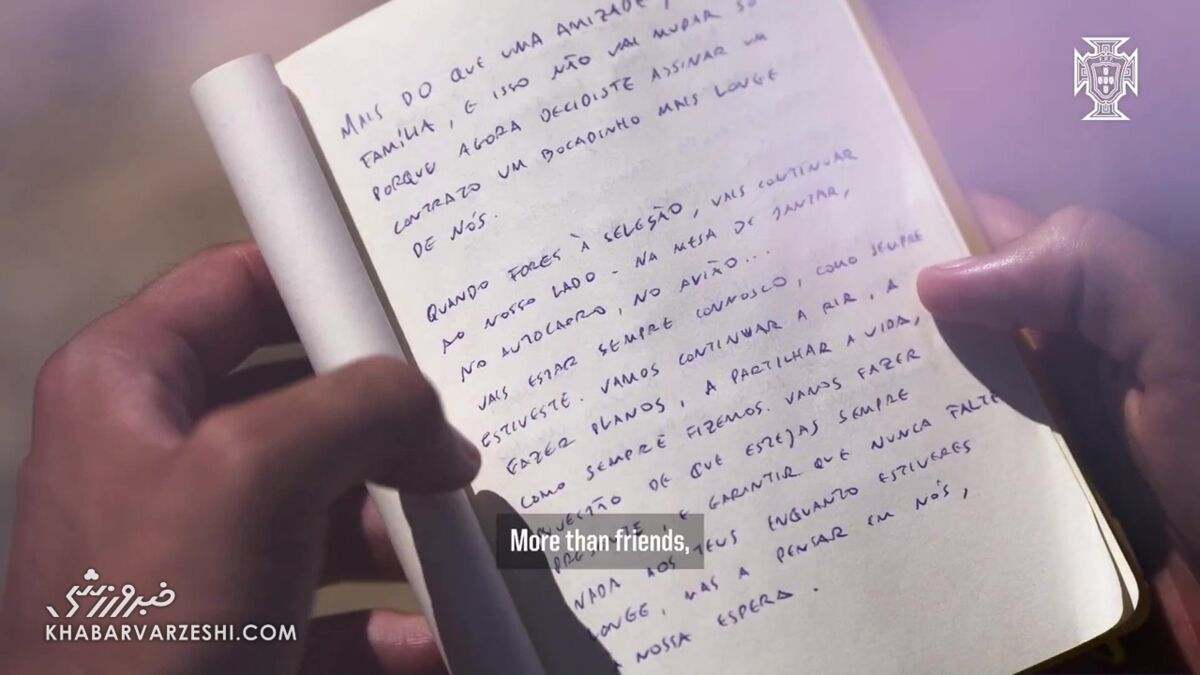 MAIS DO QUE UMA AMIZADE,
FAMÍLIA, E ISSO NÃO VAI MUDAR SÓ
PORQUE AGORA DECIDISTE ASSINAR UM
CONTRATO UM BOCADINHO MAIS LONGE
DE NÓS.
QUANDO FORES À SELEÇÃO, VAIS CONTINUAR
AO NOSSO LADO - NA MESA DE JANTAR,
NO AUTOCARRO, NO AVIÃO...
VAIS ESTAR SEMPRE CONNOSCO, COMO SEMPRE
ESTIVESTE. VAMOS CONTINUAR A RIR, A
FAZER PLANOS, A PARTILHAR A VIDA,
COMO SEMPRE FIZEMOS. VAMOS FAZER
QUESTÃO DE QUE ESTEJAS SEMPRE
PRESENTE, E GARANTIR QUE NUNCA FALTE
NADA AOS TEUS ENQUANTO ESTIVERES
LONGE, MAS A PENSAR EM NÓS,
À NOSSA ESPERA.
More than friends,
خبرورزشی
KHABARVARZESHI.COM